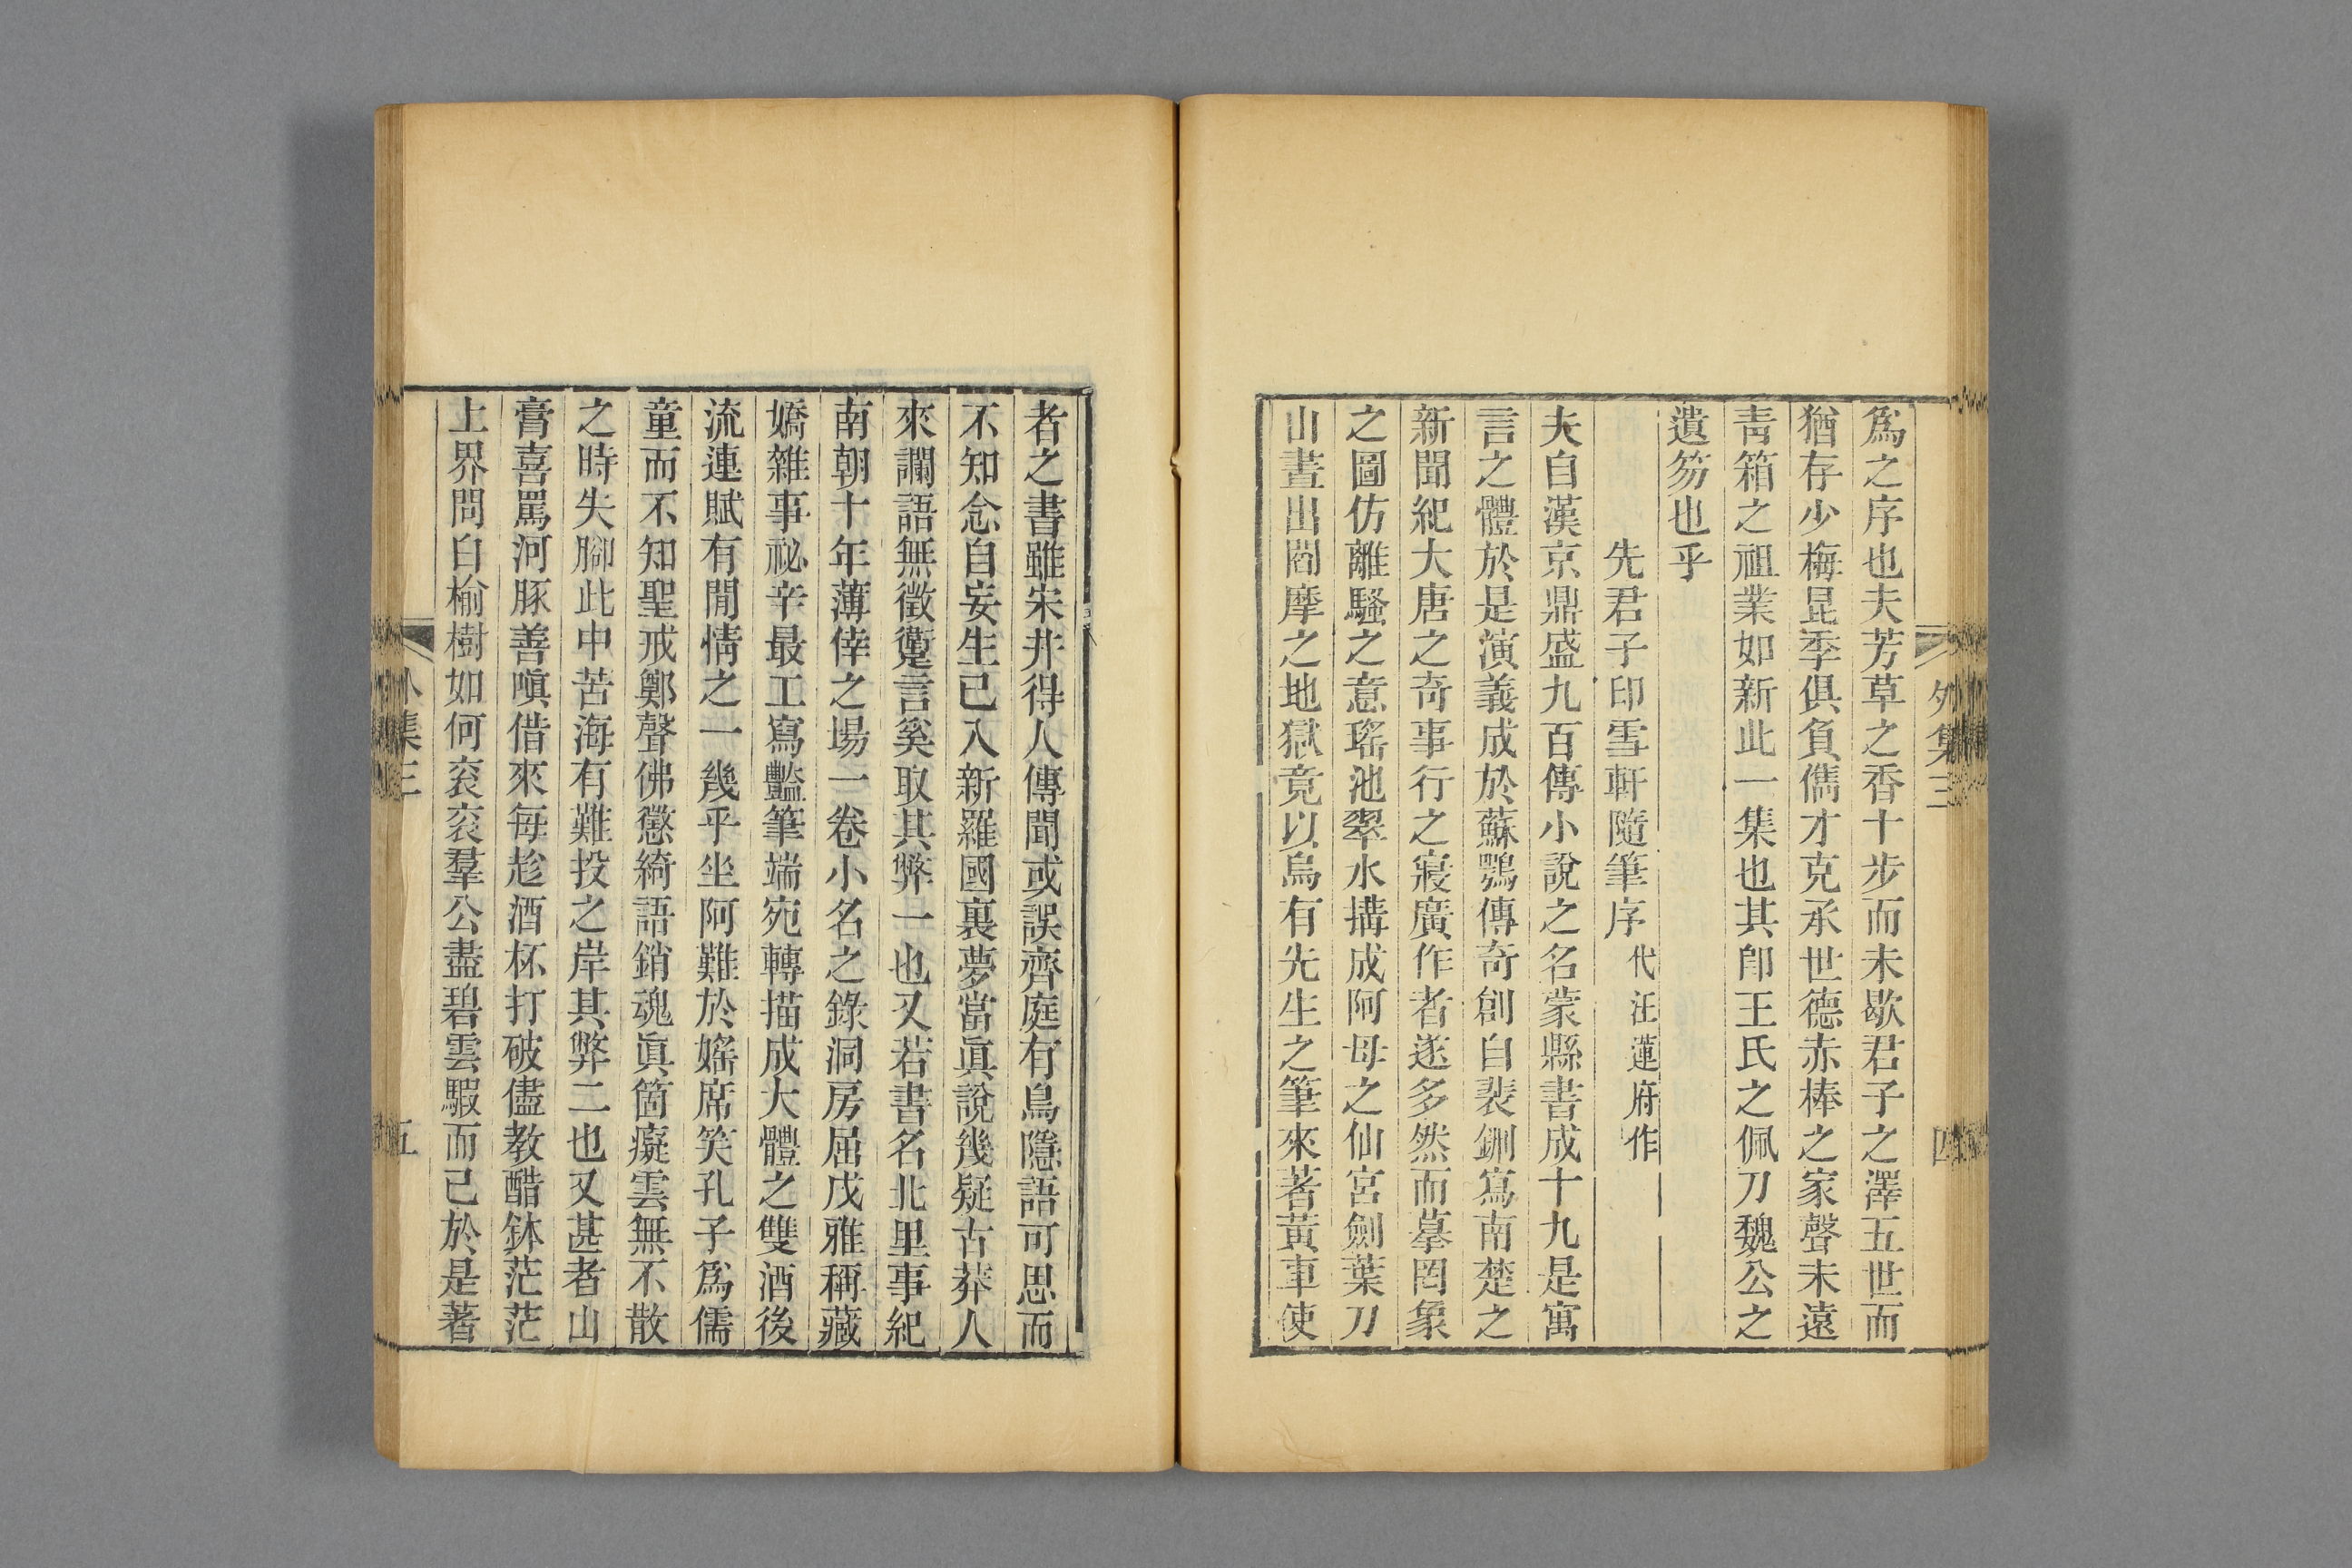 外集三
四
爲之序也夫芳草之香十步而未歇君子之澤五世而
猶存少梅昆季俱負儁才克承世德赤棒之家聲未遠
靑箱之祖業如新此一集也其卽王氏之佩刀魏公之
遺笏也乎
先君子印雪軒隨筆序代汪蓮府作
夫自漢京鼎盛九百傳小說之名蒙縣書成十九是寓
言之體於是演義成於蘇鶚傳奇創自裴鉶寫南楚之
新聞紀大唐之奇事行之寢廣作者遂多然而摹罔象
之圖仿離騷之意瑤池翠水搆成阿母之仙宮劍葉刀
山晝出閻摩之地獄竟以烏有先生之筆來著黃車使
者之書雖宋井得人傳聞或誤齊庭有鳥隱語可思而
不知念自妄生已入新羅國裏夢當眞說幾疑古莽人
來讕語無徵躗言奚取其弊一也又若書名北里事紀
南朝十年薄倖之場一卷小名之錄洞房屈戍雅稱藏
嬌雜事祕辛最工寫豔筆端宛轉描成大體之雙酒後
流連賦有閒情之一幾乎坐阿難於婬席笑孔子爲儒
童而不知聖戒鄭聲佛懲綺語銷魂眞箇癡雲無不散
之時失腳此中苦海有難投之岸其弊二也又甚者山
膏喜罵河豚善嗔借來每趁酒杯打破儘教醋鉢茫茫
上界問白榆樹如何衮衮羣公盡碧雲騢而已於是著
外集三
五